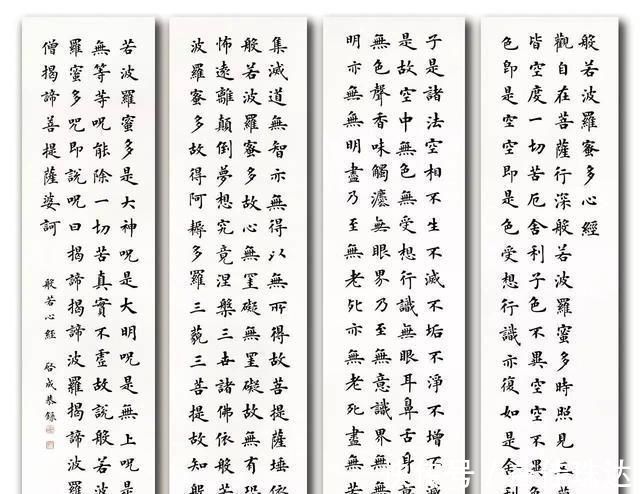 般若波羅蜜多心經
觀自在菩薩行深般若波羅蜜多時照見五
皆空度一切苦厄舍利子色不異空空不異
色即是空空即是色受想行識亦復如是舍利
子是諸法空相不生不滅不垢不淨不增不
是故空中無色無受想行識無眼耳鼻舌身
無色聲香味觸灋無眼界乃至無意識界無
明亦無無明盡乃至無老死亦無老死盡無
集滅道無智亦無得以無所得故菩提薩埵依
般若波羅蜜多故心無罣礙無罣礙故無有恐
怖遠離顛倒夢想究竟涅槃三世諸佛依般若
波羅蜜多故得阿耨多羅三藐三菩提故知般
若波羅蜜多是大神咒是大明咒是無上咒是
無等等咒能除一切苦真實不虛故說般若波
羅蜜多咒即說咒曰揭諦揭諦波羅揭諦波羅
僧揭諦菩提薩婆訶
般若心經 啓成恭錄